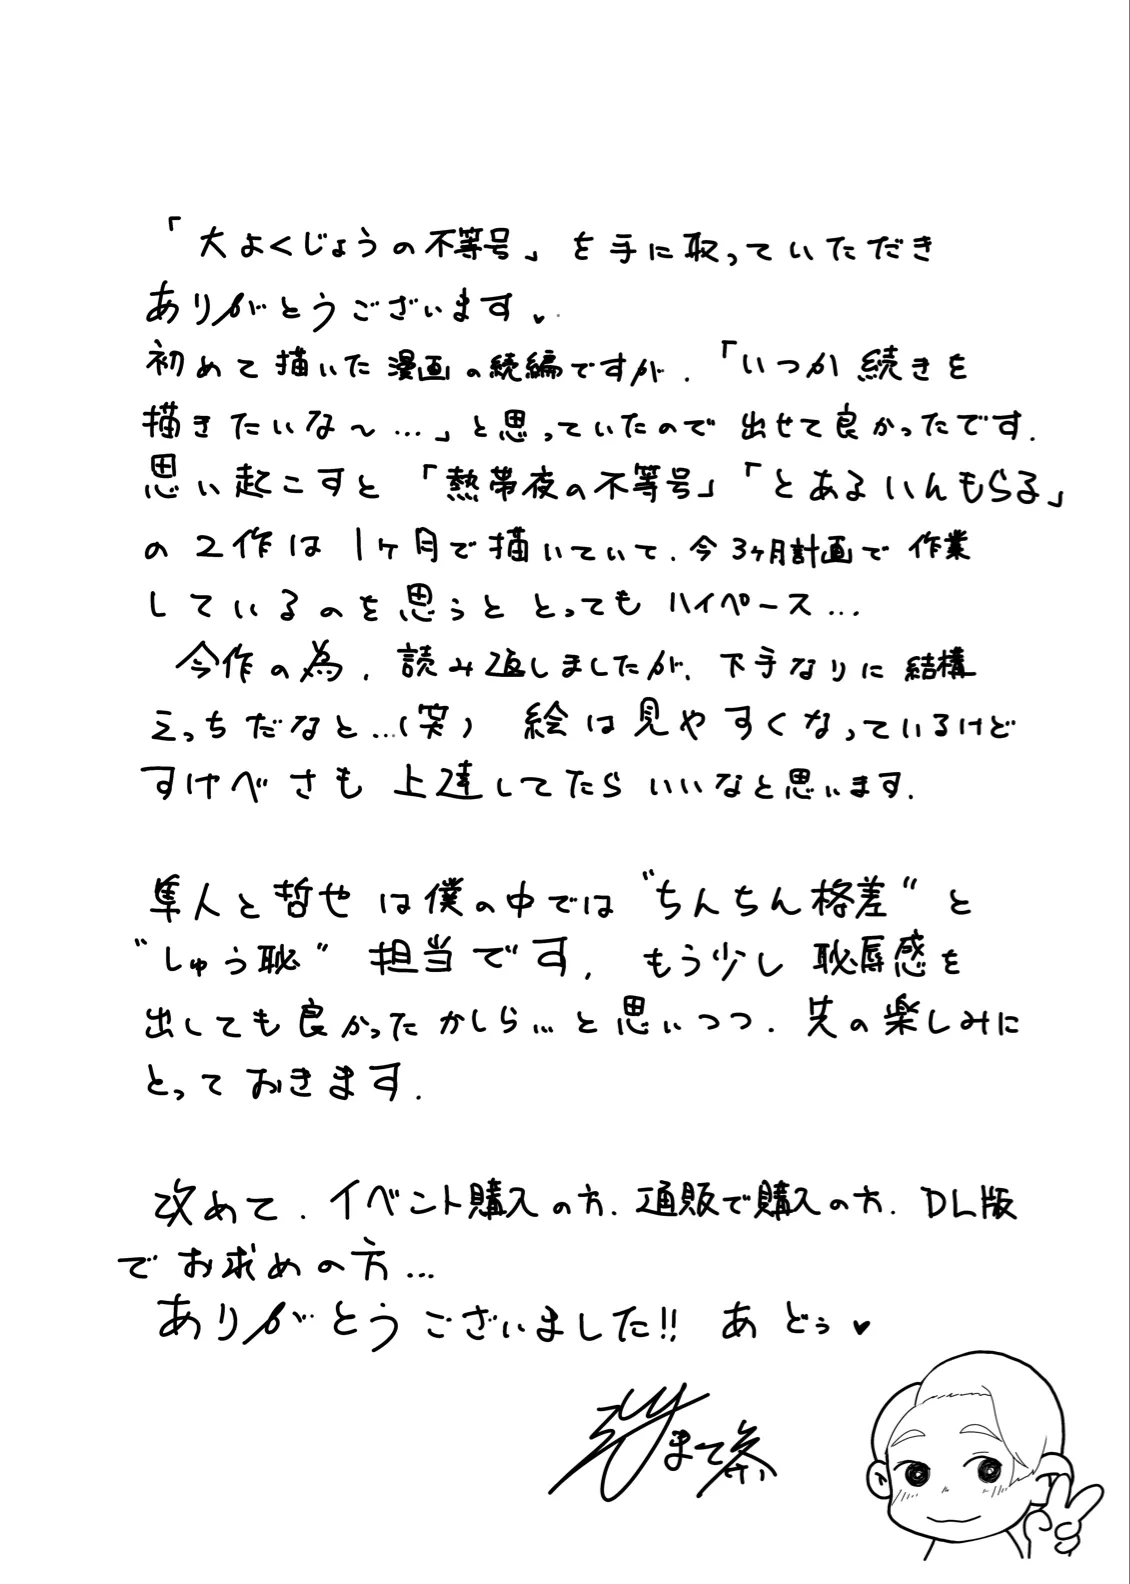 「大よくじょうの不等号」を手に取っていただき
ありがとうございます♥
初めて描いた漫画の続編ですが、「いつか続きを
描きたいな〜…」と思っていたので出せて良かったです.
思い起こすと「熱帯夜の不等号」「とあるいんもらる」
の2作は1ヶ月で描いていて、今3ヶ月計画で作業
しているのを思うととってもハイペース…
今作の為、読み返しましたが、下手なりに結構
えっちだなと…(笑) 絵は見やすくなっているけど
すけべさも上達してたらいいなと思います.
隼人と哲也は僕の中では"ちんちん格差"と
"しゅう恥"担当です. もう少し恥辱感を
出しても良かったかしら…と思いつつ、先の楽しみに
とっておきます.
改めて、イベント購入の方、通販で購入の方、DL版
でお求めの方…
ありがとうございました!! あどぅ♥